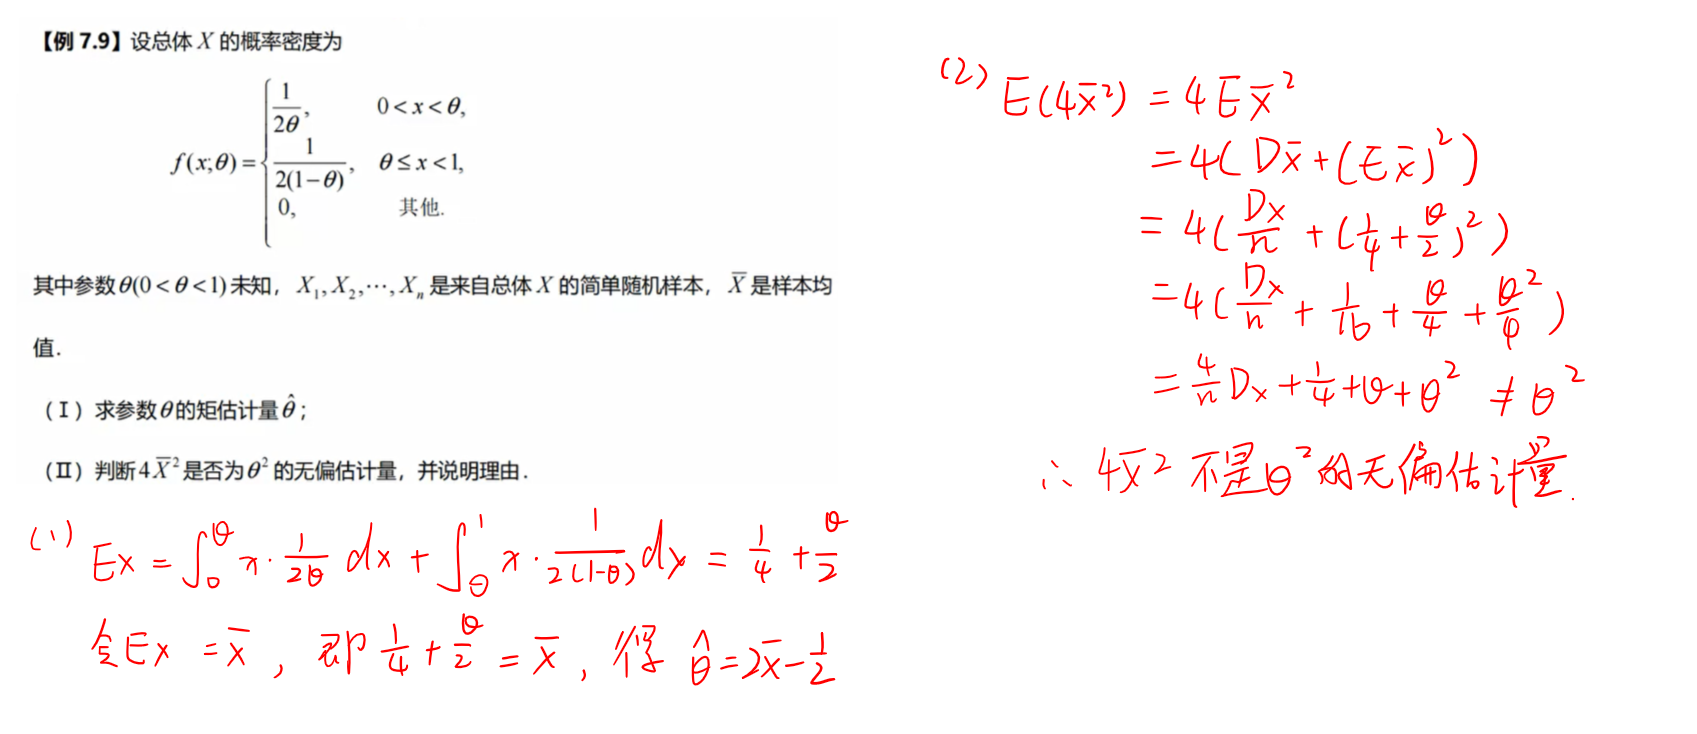 【例 7.9】设总体 X 的概率密度为
f(x;θ) = { 1/(2θ), 0 < x < θ,
1/(2(1−θ)), θ ≤ x < 1,
0, 其他.
其中参数 θ(0 < θ < 1) 未知，X₁, X₂, ⋯, Xₙ 是来自总体 X 的简单随机样本，X̅ 是样本均
值.
（Ⅰ）求参数 θ 的矩估计量 θ̂；
（Ⅱ）判断 4X̅² 是否为 θ² 的无偏估计量，并说明理由.
(1) Ex = ∫₀^θ x · 1/(2θ) dx + ∫_θ^1 x · 1/(2(1-θ)) dx = 1/4 + θ/2
令Ex = x̅, 即 1/4 + θ/2 = x̅, 得 θ̂ = 2x̅ − 1/2
(2) E(4x̅²) = 4Ex̅²
= 4(Dx̅ + (Ex̅)²)
= 4(Dx/n + (1/4 + θ/2)²)
= 4(Dx/n + 1/16 + θ/4 + θ²/4)
= 4/n Dx + 1/4 + θ + θ² ≠ θ²
∴ 4x̅² 不是θ²的无偏估计量.